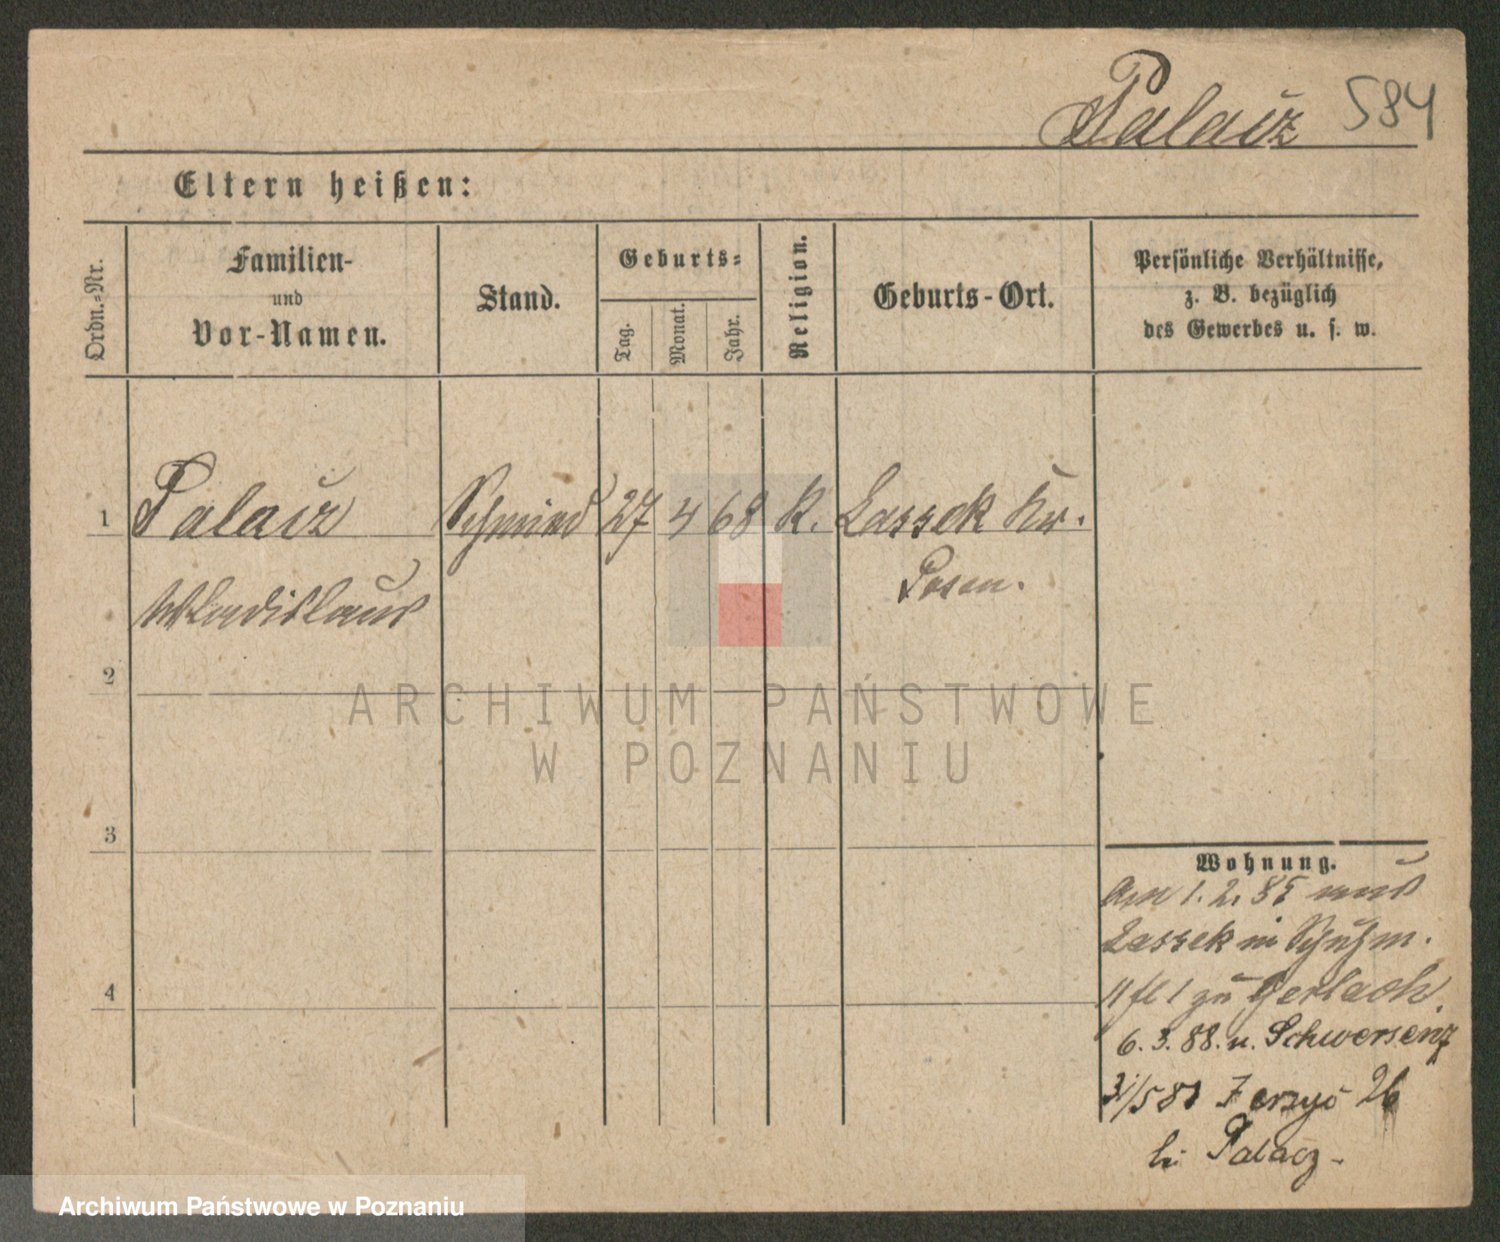 Palacz 584
Eltern heißen:
Ordn.-Nr.
Familien-
und
Vor-Namen.
Stand.
Geburts-
Tag.
Monat.
Jahr.
Religion.
Geburts-Ort.
Persönliche Verhältnisse,
z. B. bezüglich
des Gewerbes u. s. w.
1 Palacz Schmied 27 4 68 K. Lassek Kr.
Posen.
Wladislaus
2
ARCHIWUM PAŃSTWOWE
W POZNANIU
3
Wohnung.
Am 1. 2. 85 aus
Lassek in Schuhm.
zu Gerlach.
6. 3. 88. n. Schwersenz
Jerzyc 26
bei Palacz
4
Archiwum Państwowe w Poznaniu